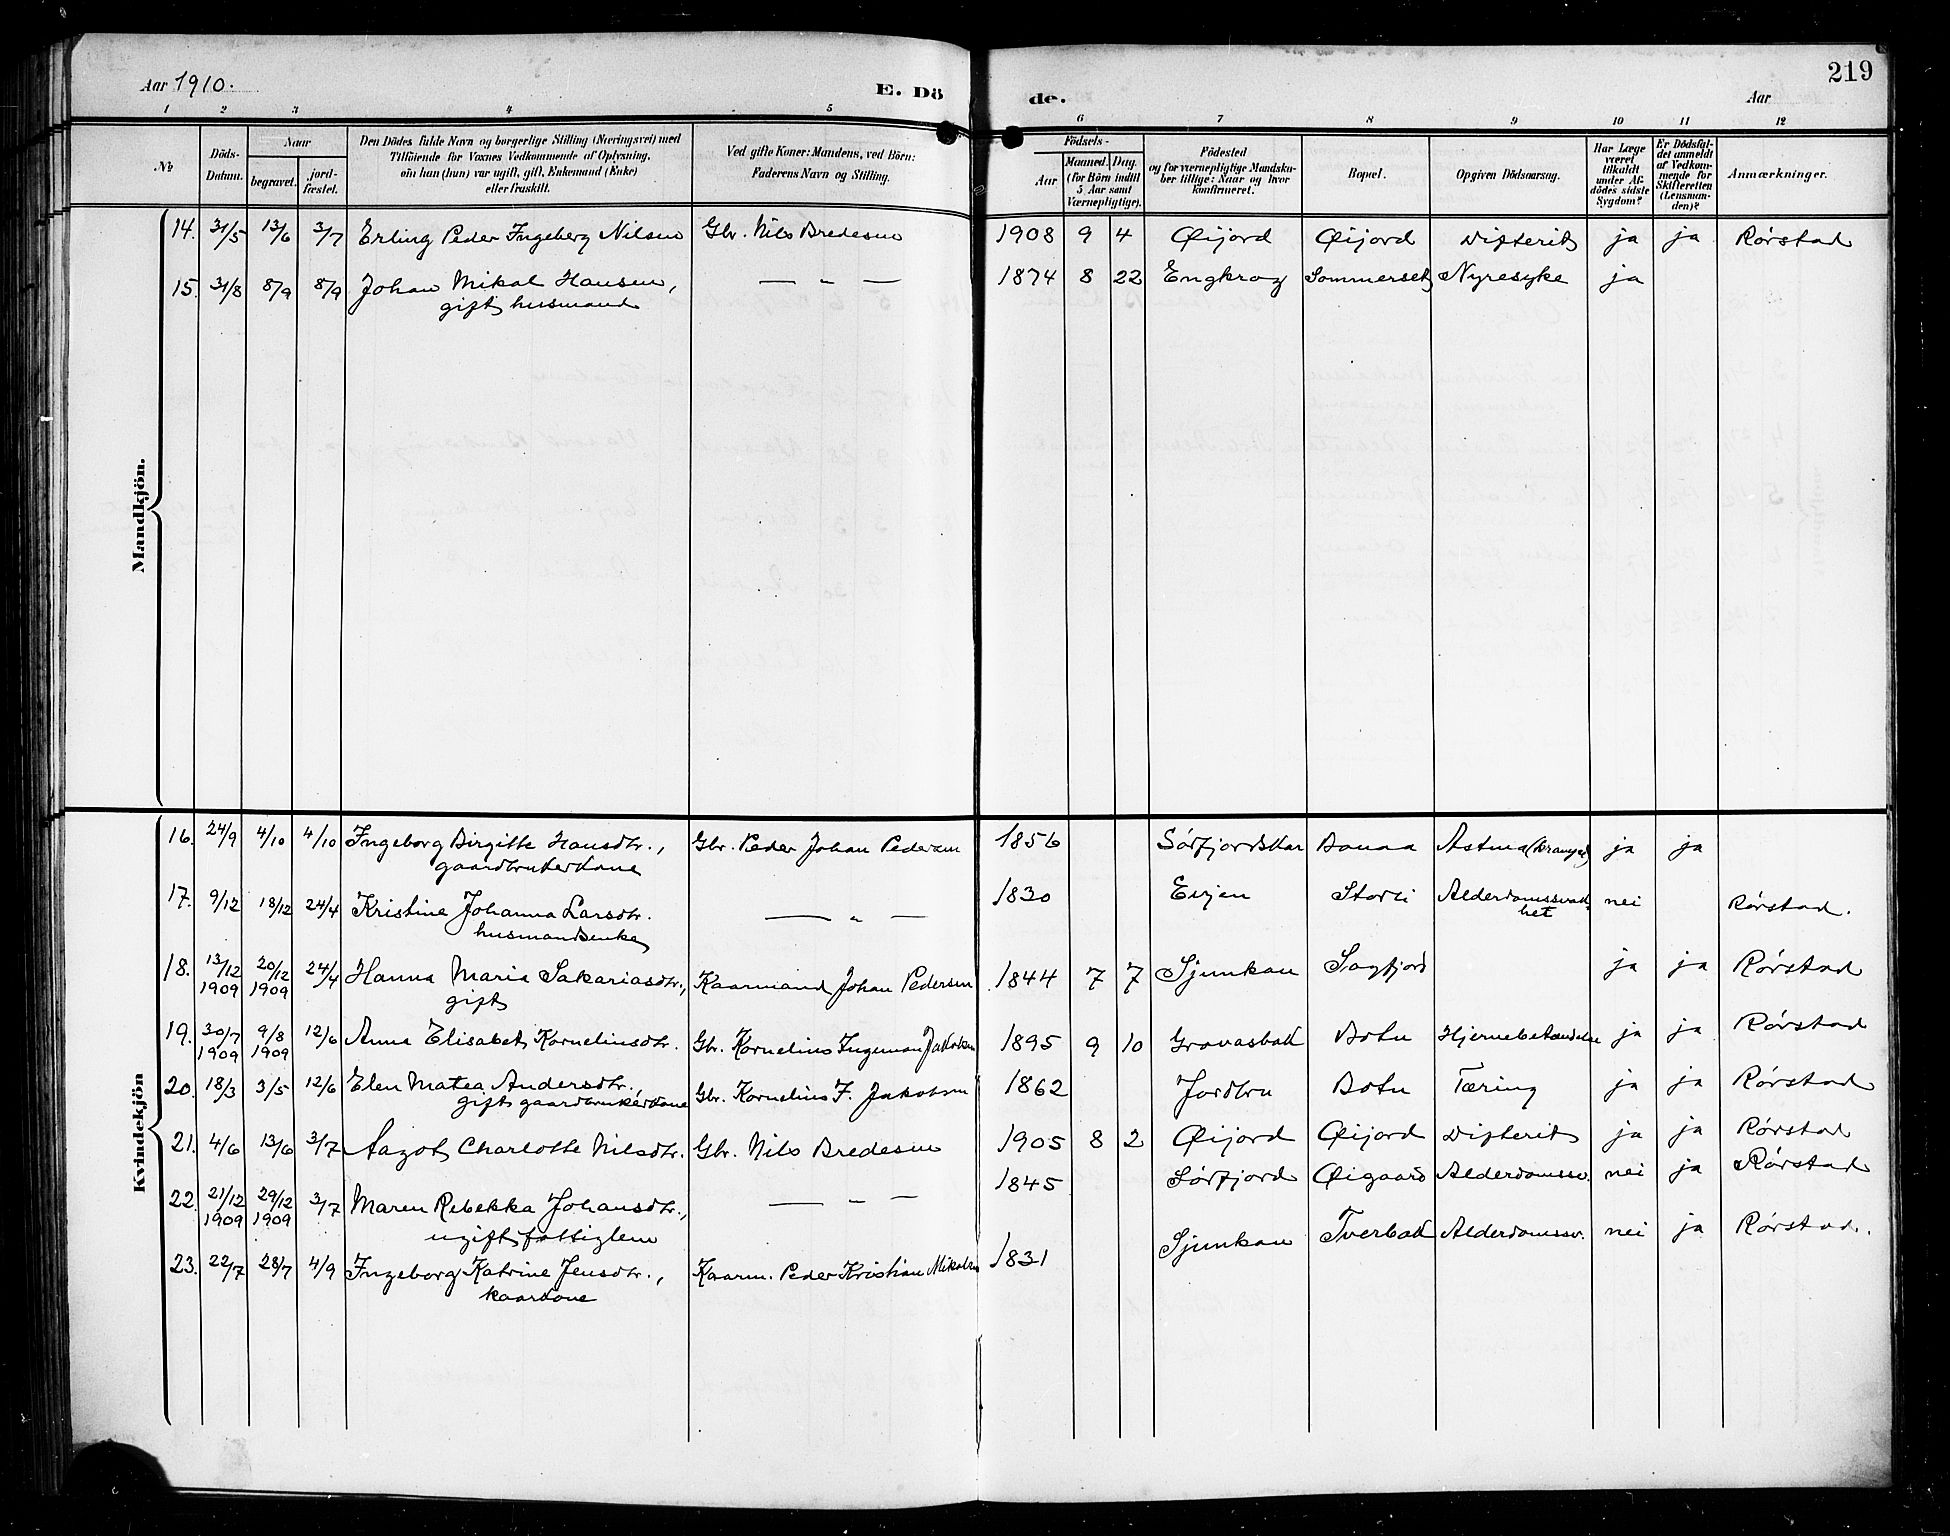 Aar 1910. E. Dö de. Aar 219
1 2 3 4 5 6 7 8 9 10 11 12
№ Döds-Datum. Naar begravet. jord-fæstet. Den Dödes fulde Navn og borgerlige Stilling (Næringsvei) med Tilföiende for Voxnes Vedkommende af Oplysning, om han (hun) var ugift, gift, Enkemand (Enke) eller fraskilt. Ved gifte Koner: Mandens, ved Börn: Faderens Navn og Stilling. Födsels- Aar Maaned. Dag. (for Börn indtil 5 Aar samt Værnepligtige). Födested og for værnepligtige Mandskaber tillige: Naar og hvor konfirmeret. Bopæl. Opgiven Dödsaarsag. Har Læge været tilkaldt under Afdödes sidste Sygdom? Er Dödsfaldet anmeldt af Vedkommende for Skifteretten (Lensmanden)? Anmærkninger.
Mandkjön.
14. 31/5 13/6 3/7 Erling Peder Ingeberg Nilsen Gbr. Nils Bredesen 1908 9 4 Øijord Øijord Difterit ja ja Rørstad
15. 31/8 8/9 8/9 Johan Mikal Hansen, — „ — 1874 8 22 Engkrog Sommerset Nyresyke ja
gift husmand
Kvindekjön
16. 24/9 4/10 4/10 Ingeborg Birgitte Hansdtr., Gbr. Peder Johan Pedersen 1856 Sørfjordskar Bonaa Astma ja ja
gaardbrukerkone
17. 9/12 18/12 24/4 Kristine Johanna Larsdtr. — „ — 1830 Evjen Storli Alderdomssvak- nei Rørstad.
husmandsenke het
18. 13/12 20/12 24/4 Hanna Maria Sakariasdtr., Kaarmand Johan Pedersen 1844 7 7 Sjunkan Sagfjord ja ja Rørstad
1909 1909 gift
19. 30/7 9/8 12/6 Anna Elisabet Kornelinsdtr. Gbr. Kornelius Ingeman Jakobsen 1895 9 10 Gravasbak Botn Hjernebetændelse ja ja Rørstad
1909 1909
20. 18/3 3/5 12/6 Elen Matea Andersdtr., Gbr. Kornelius I. Jakobsen 1862 Jordbru Botn Tæring ja ja Rørstad
gift gaardbrukerkone
21. 4/6 13/6 3/7 Aagot Charlotte Nilsdtr. Gbr. Nils Bredesen 1905 8 2 Øijord Øijord Difterit ja ja Rørstad
22. 21/12 29/12 3/7 Maren Rebekka Johansdtr., — „ — 1845 Sørfjord Øigaard Alderdomssv. nei ja Rørstad
1909 1909 ugift fattiglem
23. 22/7 28/7 4/9 Ingeborg Katrine Jensdtr., Kaarm. Peder Kristian Mikalsen 1831 Sjunkan Tverbak Alderdomssv. nei ja Rørstad.
kaarkone